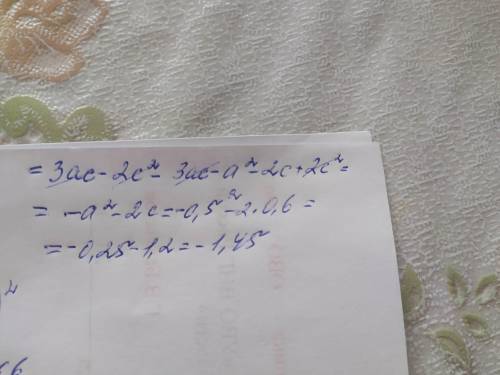 = 3ac - 2c² - 3ac - a² - 2c + 2c² =
= -a² - 2c = -0,5² - 2·0,6 =
= -0,25 - 1,2 = -1,45